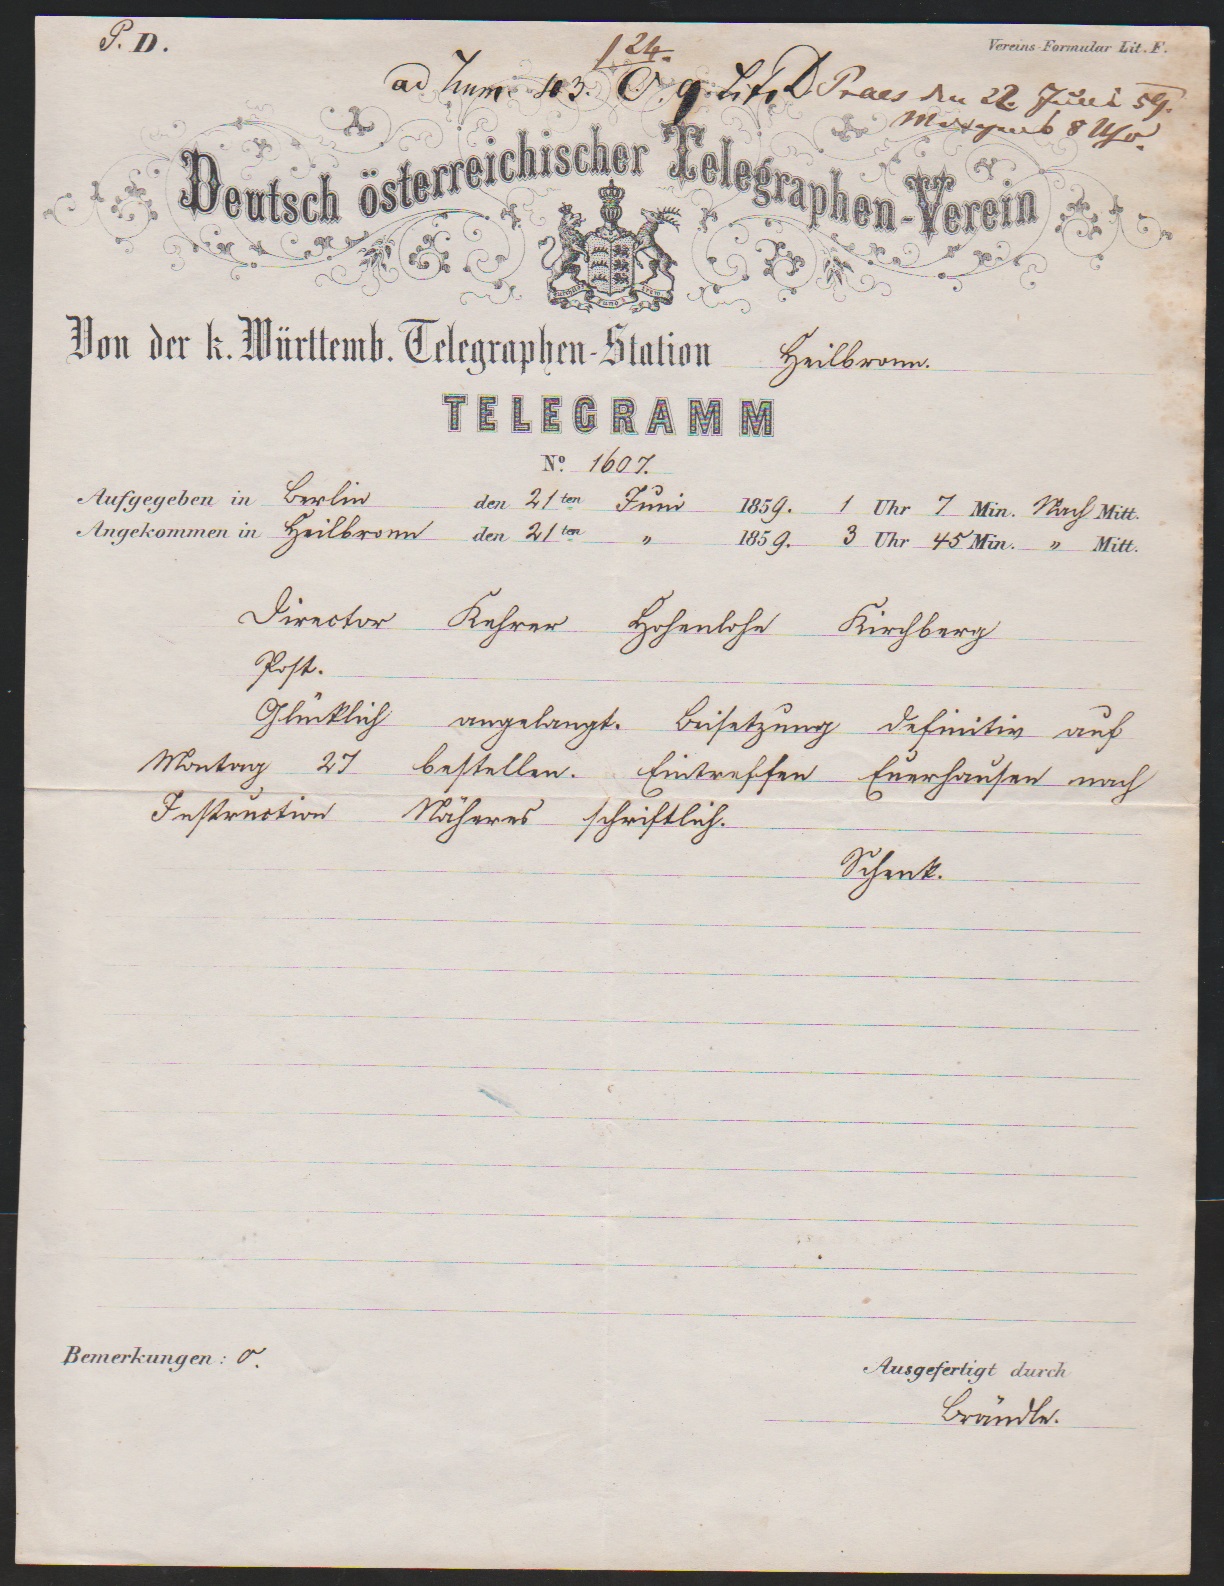 P. D.
Vereins-Formular Lit. F.
124.
ad Num. 103. O. 9. Lit. D Praes den 22. Juni 59.
Morgends 8 Uhr.
Deutsch österreichischer Telegraphen-Verein
Von der k. Württemb. Telegraphen-Station Heilbronn.
TELEGRAMM
No. 1607.
Aufgegeben in Berlin den 21ten Juni 1859. 1 Uhr 7 Min. Nach Mitt.
Angekommen in Heilbronn den 21ten " 1859. 3 Uhr 45 Min. " Mitt.
Director Kehrer Hohenlohe Kirchberg
Post.
Glücklich angelangt. Beisetzung definitiv auf
Montag 27 bestellen. Eintreffen Euerhausen nach
Instruction Näheres schriftlich.
Schenk.
Bemerkungen: o.
Ausgefertigt durch
Brändle.